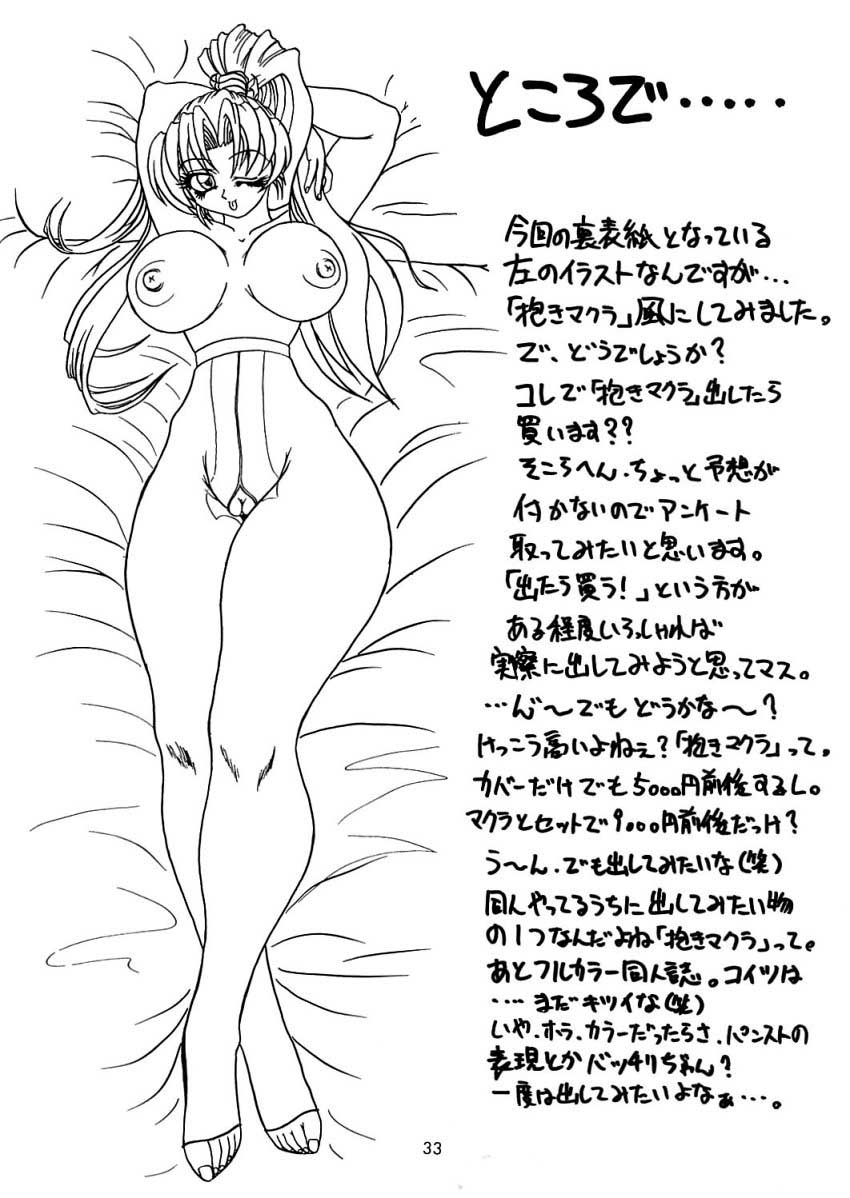 ところで・・・・・
今回の裏表紙となっている
左のイラストなんですが・・・
「抱きマクラ」風にしてみました。
で、どうでしょうか?
コレで「抱きマクラ」出したら
買います??
そころへん、ちょっと予想が
付かないのでアンケート
取ってみたいと思います。
「出たら買う!」という方が
ある程度いらっしゃれば
実際に出してみようと思ってマス。
・・・ん゛〜でもどうかな〜?
けっこう高いよねぇ?「抱きマクラ」って。
カバーだけでも5000円前後するし。
マクラとセットで9000円前後だっけ?
う〜ん、でも出してみたいな(笑)
同人やってるうちに出してみたい物
の1つなんだよね「抱きマクラ」って。
あとフルカラー同人誌。コイツは
・・・・まだキツイな(笑)
いや、ホラ、カラーだったらさ、パンストの
表現とかバッチリぢゃん?
一度は出してみたいよなぁ・・・。
33